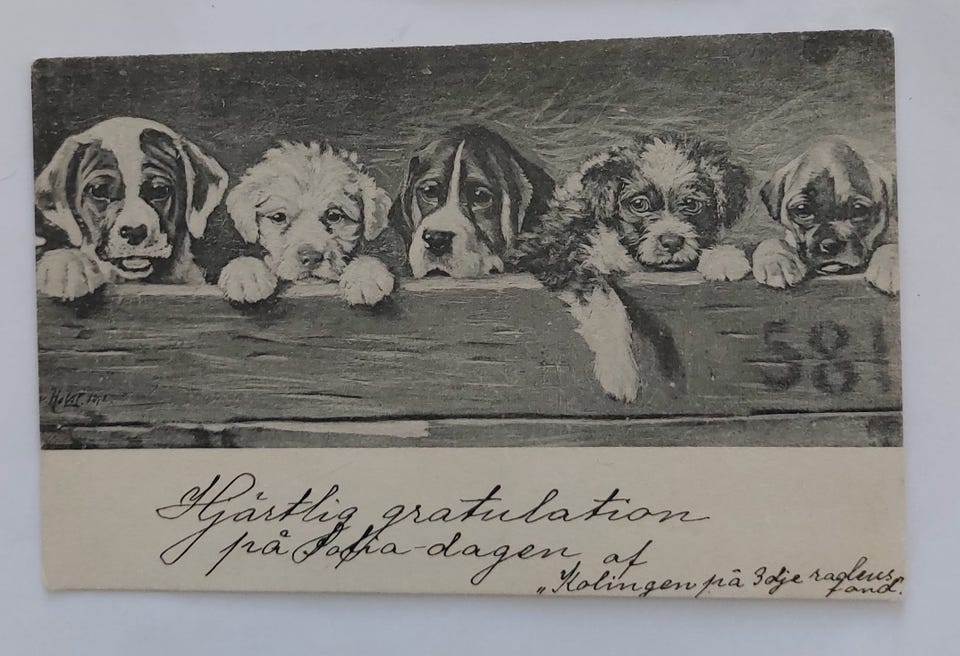 581
Hjärtlig gratulation
på Sofia-dagen af
„Kolingen på 3dje
fond."